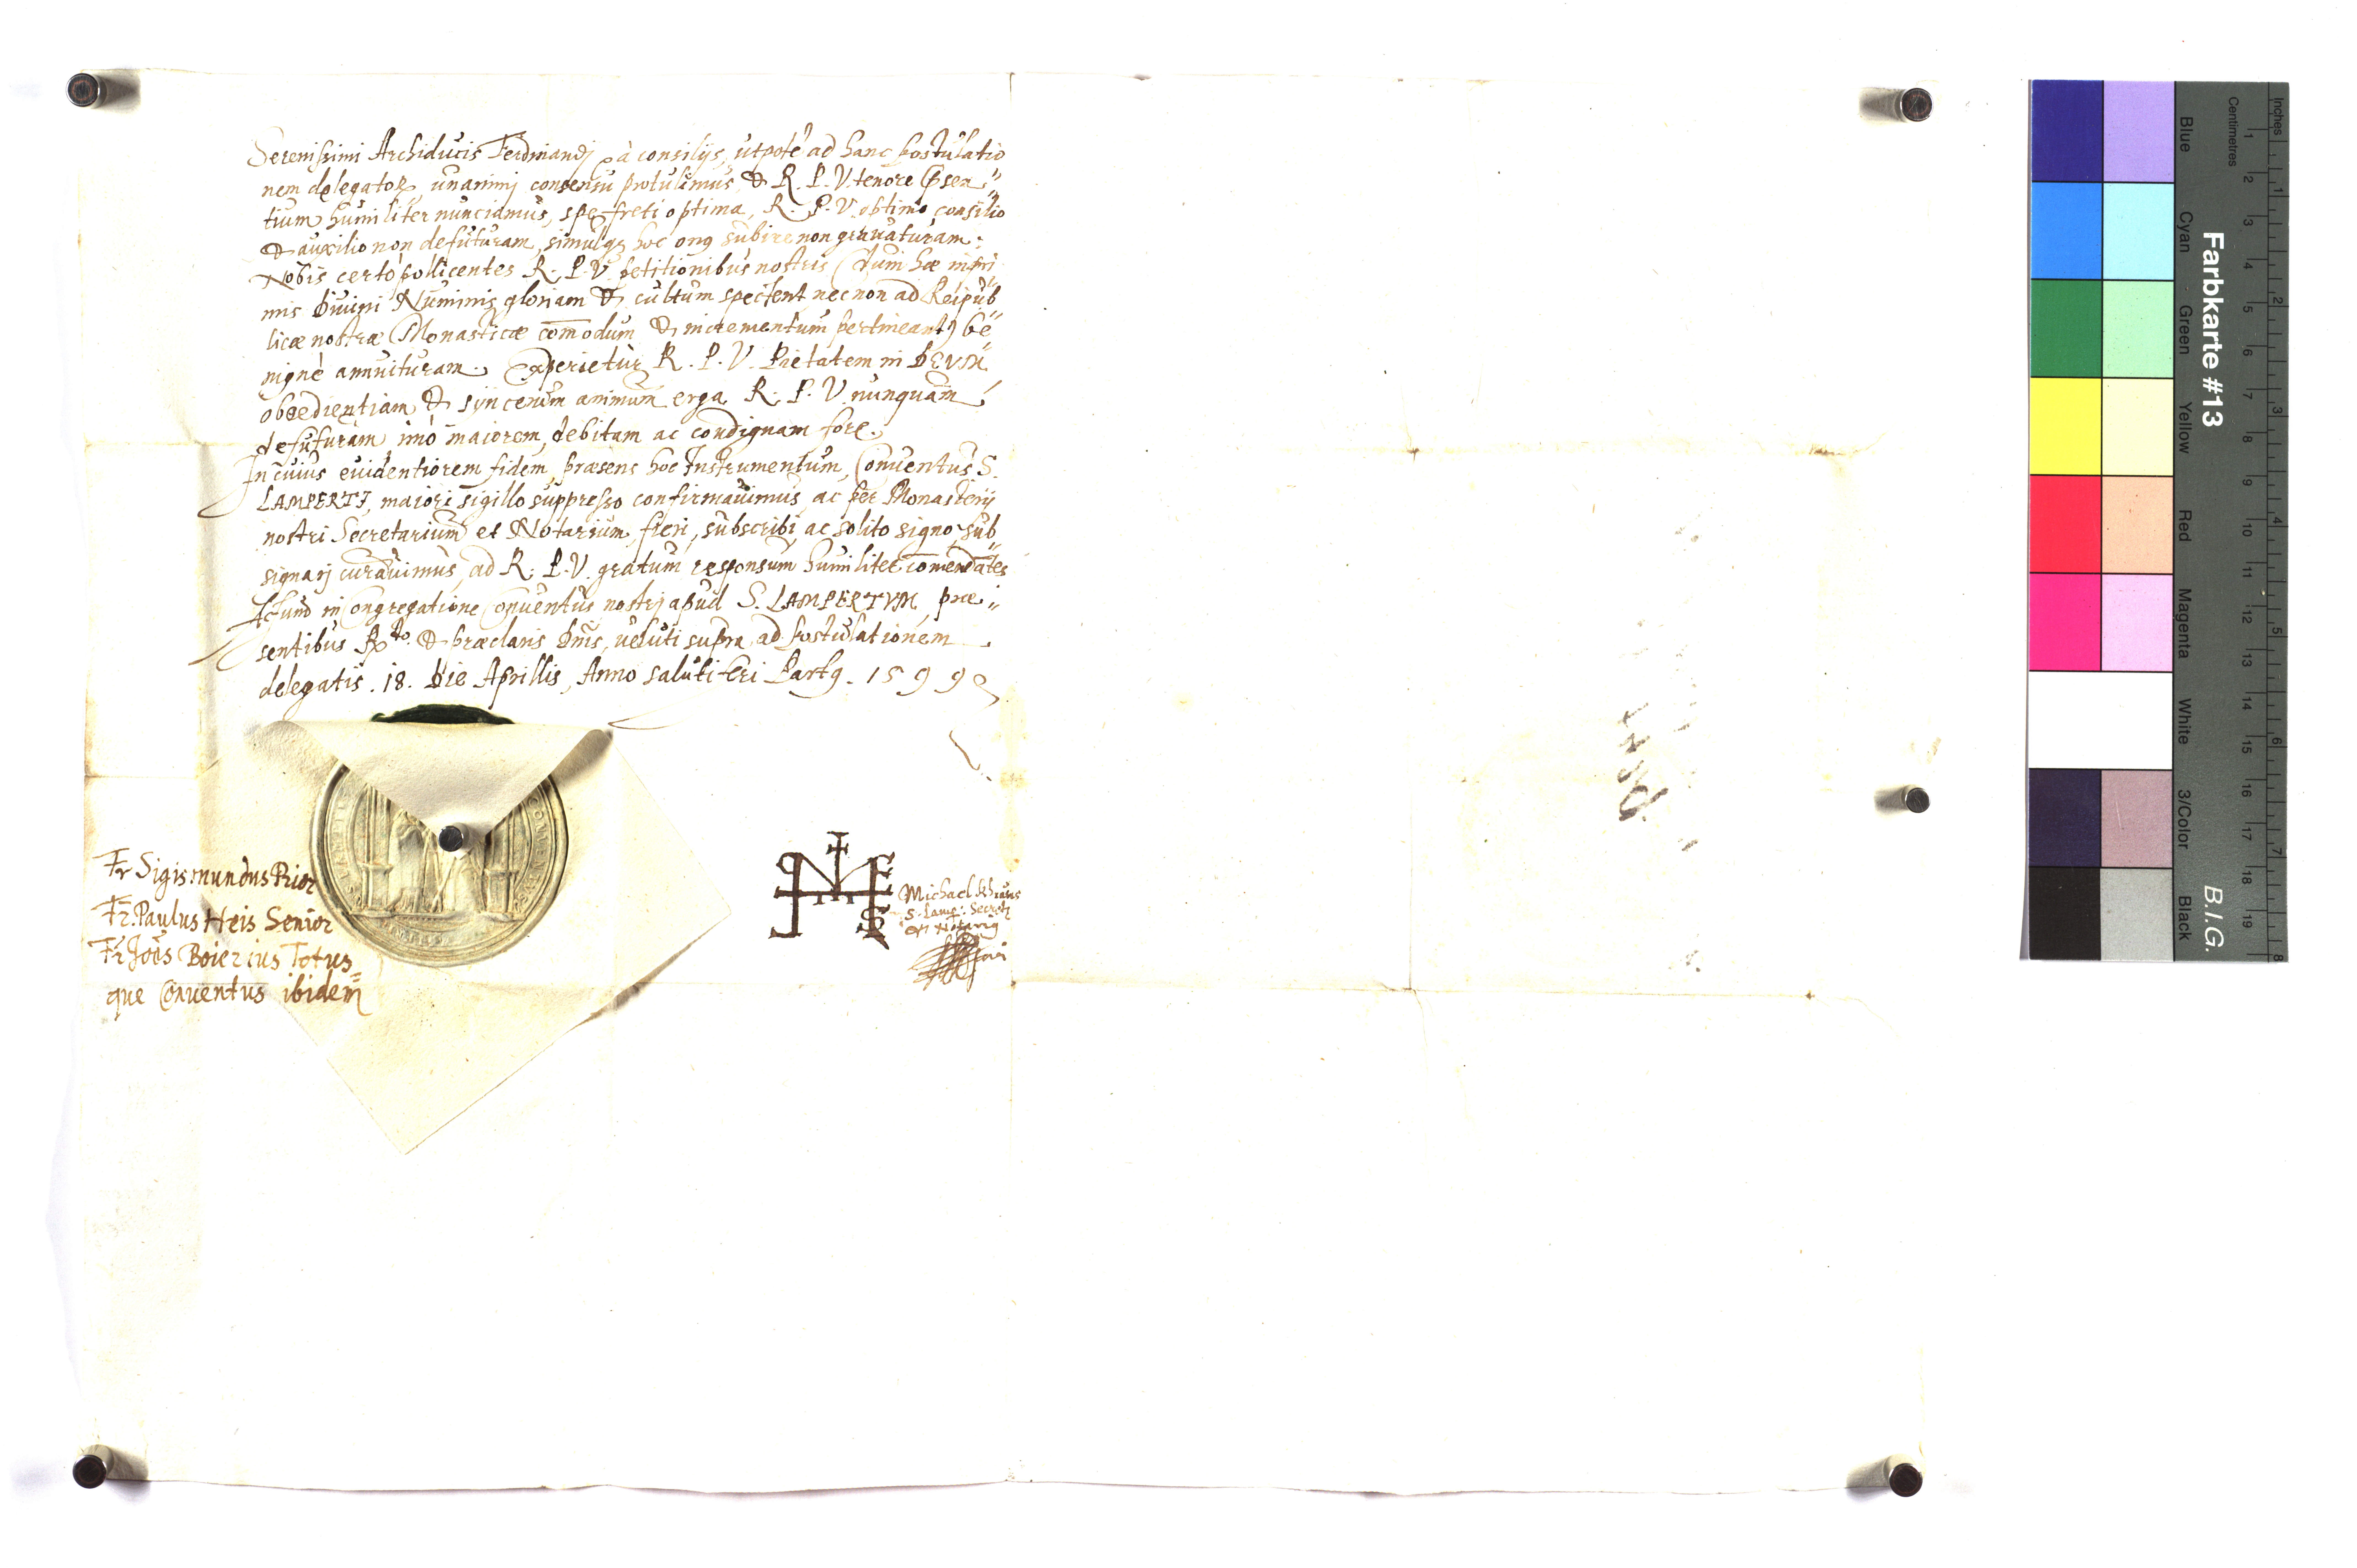 Serenissimi Archiducis Ferdinandj à consilijs, utpote ad hanc postulatio
nem delegator, unanimj consensu protulimus & R. P. V. tenore psen
tium humiliter nunciamus, spe freti optima, R. P. V. optimo consilio
& auxilio non defuturam, simulq hoc onq subire non grauaturam:
Nobis certo pollicentes R. P. V. petitionibus nostris (dum hæ inpri
mis Diuini Numinis gloriam & cultum spectent nec non ad Reipub
licæ nostræ Monasticæ comodum & incrementum pertineant) be
nignè annuituram. Experietur R. P. V. Pietatem in DEVM
obœdientiam & syncerum animum erga R. P. V. nunquam
defuturam imò maiorem, debitam ac condignam fore.
In cuius euidentiorem fidem, præsens hoc Instrumentum, Conuentus S.
LAMPERTJ, maiori sigillo suppresso confirmauimus, ac per Monasterij
nostri Secretarium et Notarium, fieri, subscribi, ac solito signo, sub
signarj curauimus, ad R. P. V. gratum responsum humiliter comendates
Actum in Congregatione Conuentus nostrj apud S. LAMPERTVM, præ
sentibus Rdo & præclaris Dnis, ueluti supra, ad postulationem
delegatis. 18. Die Aprillis, Anno salutiferi Partq. 1599
Fr Sigismundus Prior
Fr. Paulus Heis Senior
Fr Joës Boierius Totus
que Conuentus ibidem
Michael
S. Lamp: Secret
et Notariq
Farbkarte #13
B.I.G.
Blue Cyan Green Yellow Red Magenta White 3/Color Black
Centimetres 1 2 3 4 5 6 7 8 9 10 11 12 13 14 15 16 17 18 19
Inches 1 2 3 4 5 6 7 8